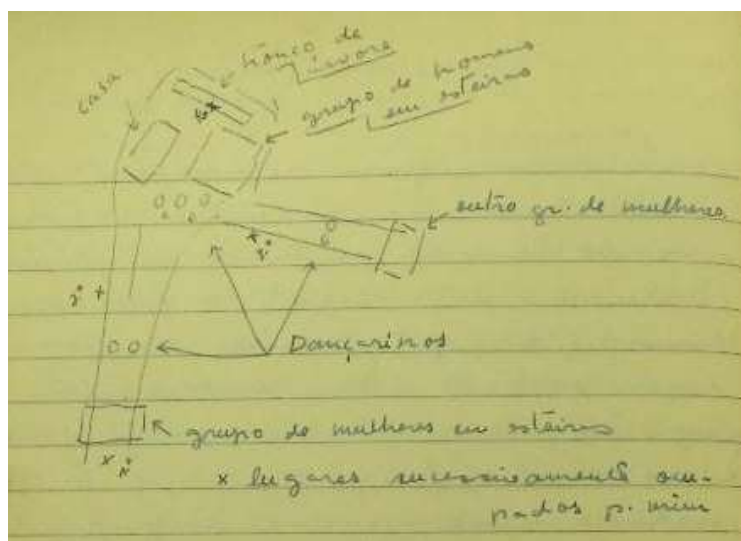 tronco de
árvore
casa
grupo de homens
em esteiras
outro gr. de mulheres
2º
Dançarinos
grupo de mulheres em esteiras
1º
x lugares sucessivamente ocu-
pados p. mim